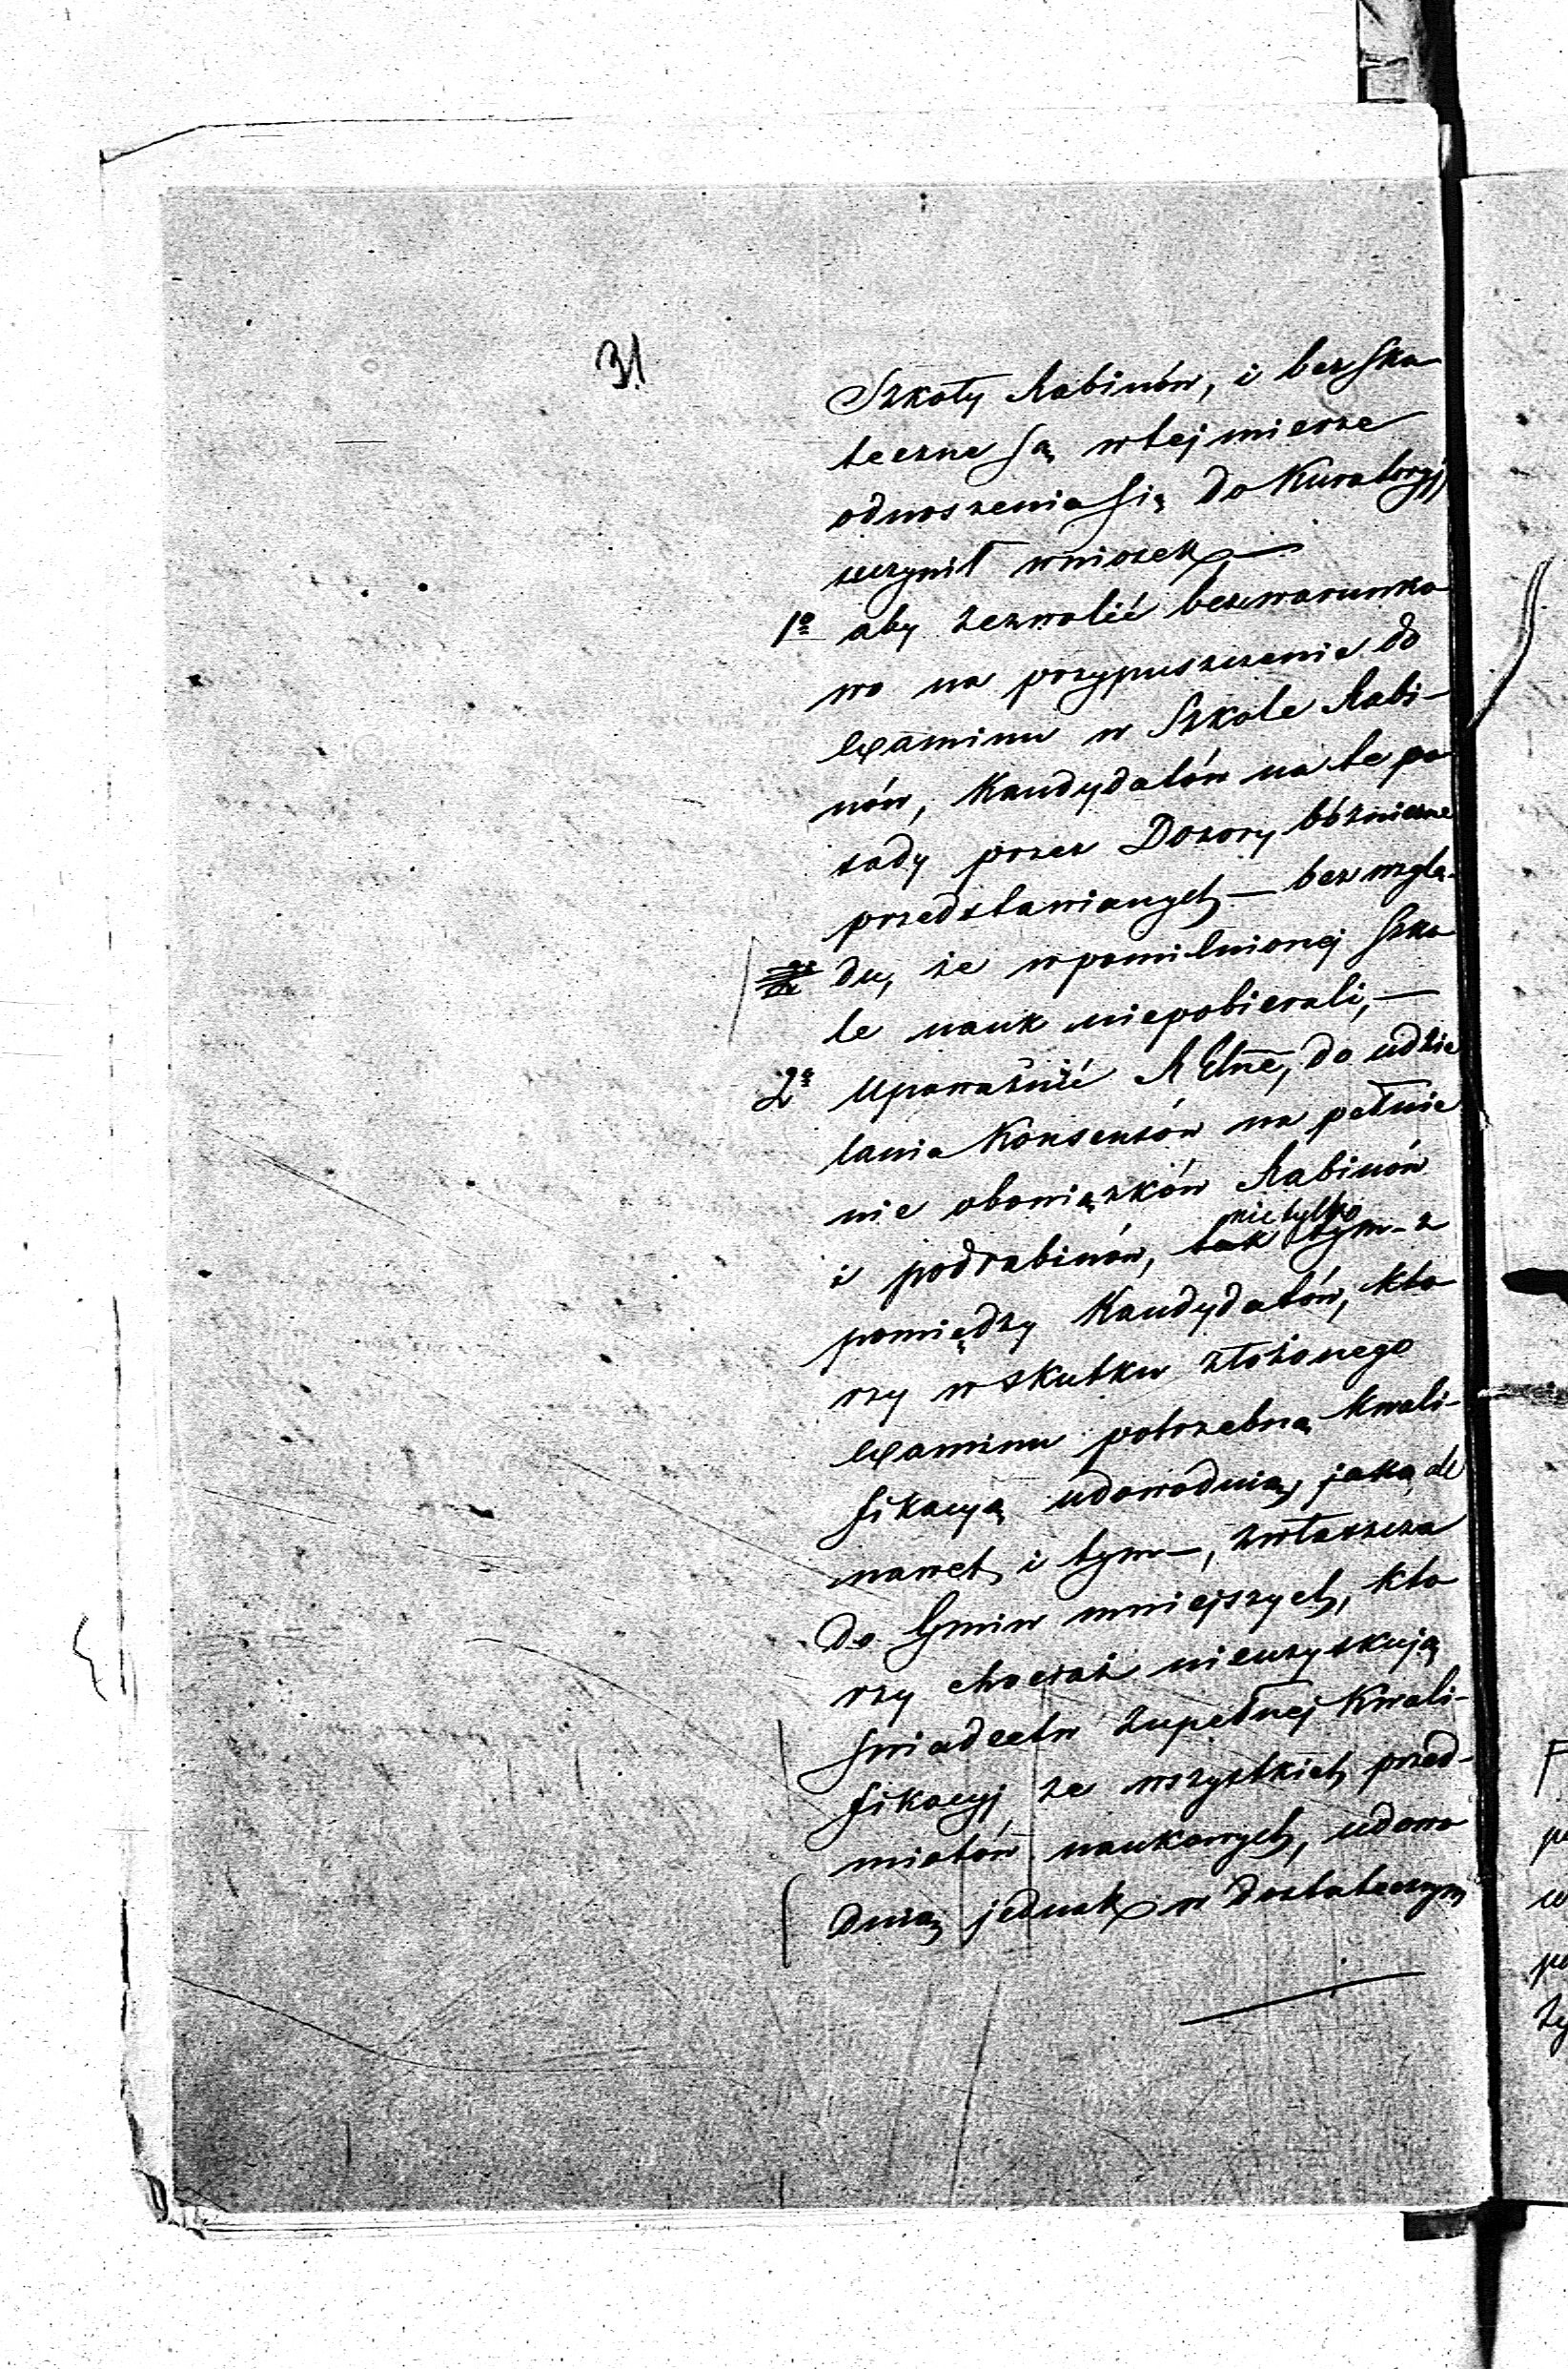 31
Szkoły Rabinów, i bezsku
teczne są w tej mierze
odnoszenia się do Kuratoryj,
uczynił wniosek —
1o aby zezwolić bezwarunko
wo na przypuszczenie do
Examinu w Szkole Rabi-
nów, Kandydatów na te po
sady przez Dozory bóżnicze
przedstawianych — bez wzglę-
du, że w pomienionej szko
le nauk niepobierali, —
2o Upoważnić do udzie
lania Konsensów na pełnie
nie obowiązków Rabinów
nietylko
i podrabinów, tak tym - z
pomiędzy Kandydatów, któ
rzy w skutku złożonego
Examinu potrzebną kwali-
fikacyą udowodnią, jaką ale
nawet i tym —, zwłaszcza
do Gmin mniejszych, któ
rzy chociaż nieuzyskują
świadectw zupełnej Kwali-
fikacyj ze wszystkich przed-
miotów naukowych, udowo
dnią jednak w dostatecznym